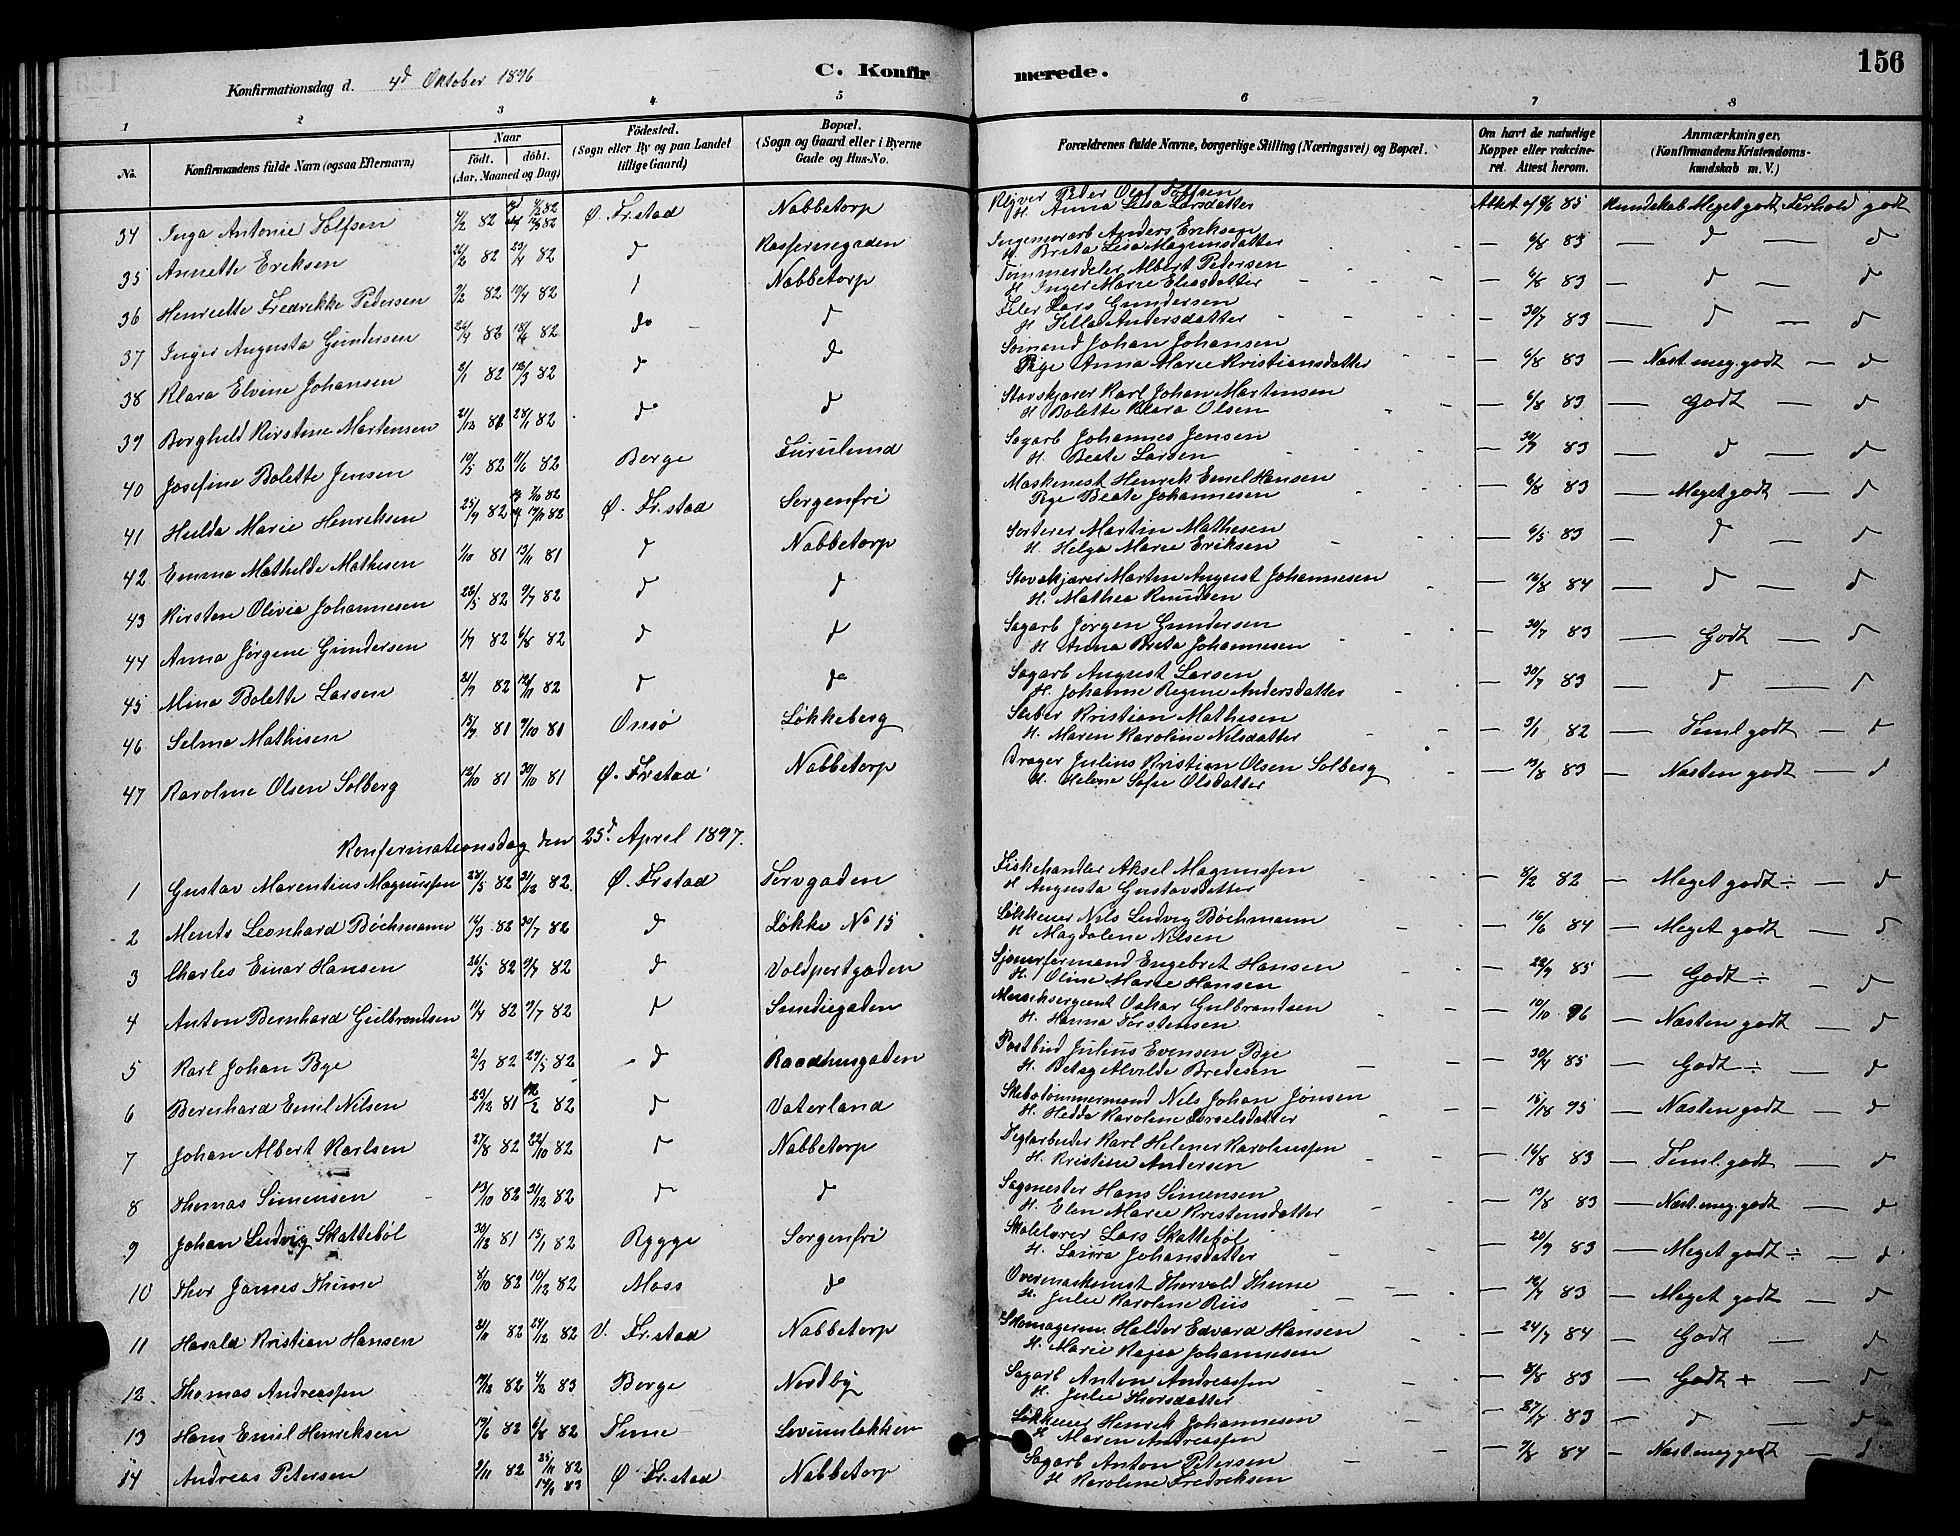 156
Konfirmationsdag d. 4d Oktober 1896
C. Konfirmerede.
1 2 3 4 5 6 7 8
No. Konfirmandens fulde Navn (ogsaa Efternavn) Naar Født. døbt. (Aar, Maaned og Dag) Fødested. (Sogn eller By og paa Landet tillige Gaard) Bopæl. (Sogn og Gaard eller i Byerne Gade og Hus-No. Forældrenes fulde Navne, borgerlige Stilling (Næringsvei) og Bopæl. Om havt de naturlige Kopper eller vakcineret. Attest herom. Anmærkninger. (Konfirmandens Kristendomskundskab m. V.)
34 Inga Antonie Tolfsen 4/2 82 Ø. Fr.stad Nabbetorp Peder Olaf Tolfsen
H. Anna Lisa Larsdatter Attest 85 Kundskab Meget godt Forhold godt
35 Annette Eriksen 82 23/4 82 d Anders Eriksen
H. Brita Lisa Magnusdatter — 6/8 83 — d — d
36 Henriette Fredrikke Petersen 9/2 82 10/4 82 d Nabbetorp Tømmerdeler Albert Petersen
H. Inger Marie Eliasdatter — 6/8 83 — d — d
37 Inger Augusta Gundersen 82 18/6 82 do d Filer Lars Gundersen
H. Tilla Andersdatter — 30/7 83 — d — d
38 Klara Elvine Johansen 2/1 82 12/3 82 d d Sømand Johan Johansen
Pige Anna Marie Kristiansdatter — 6/8 83 — Næst. meg. godt — d
39 Borghild Kirstine Martensen 21/12 81 28/1 82 d d Stavskjærer Karl Johan Martensen
H. Bolette Klara Olsen — 6/8 83 — Godt — d
40 Josefine Bolette Jensen 10/5 82 11/6 82 Borge Furulund Sagarb Johannes Jensen
H. Beate Larsen — 30/7 83 — d — d
41 Hulda Marie Henriksen 25/9 82 Ø. Fr.stad Sorgenfri Maskinist Henrik Emil Hansen
Pige Beate Johannesen — 6/8 83 — Meget godt — d
42 Emma Mathilde Mathisen 2/10 81 13/11 81 d Nabbetorp Sorterer Martin Mathesen
H. Helga Marie Eriksen — 6/5 83 — d — d
43 Kirsten Olivia Johannesen 26/5 82 9/7 82 d d Stavskjærer Marten August Johannesen
H. Mathea Knudsen — 16/8 84 — d — d
44 Anna Jørgine Gundersen 1/7 82 6/8 82 d d Sagarb Jørgen Gundersen
H. Anna Brita Johannesen — 30/7 83 — Godt — d
45 Mina Bolette Larsen 21/9 82 12/11 82 d do Sagarb August Larsen
H. Johanne Regine Andersdatter — 30/7 83 — d — d
46 Selma Mathisen 13/9 81 9/10 81 Onsø Løkkeberg Kristian Mathesen
H. Maren Karoline Nilsdatter — 3/1 82 — Teml godt — d
47 Karoline Olsen Solberg 12/10 81 30/10 81 Ø. Frstad Nabbetorp Drager Julius Kristian Olsen Solberg
H. Helene Sofie Olsdatter — 13/8 83 — Næsten godt — d
Konfirmationsdag den 25d. April 1897.
1 Gustav Marentius Magnussen 28/5 82 31/12 82 Ø. Frstad Torvgaden Fiskehandler Aksel Magnussen
H Augusta Gustavsdatter — 8/2 82 — Meget godt ÷ — d
2 Ments Leonhard Bøchmann 14/3 82 30/7 82 d Løkke No 15 Løkkeeier Nils Ludvig Bøchmann
H Magdalene Nilsen — 16/6 84 — Meget godt — d
3 Charles Einar Hansen 26/5 82 9/7 82 d Voldportgaden Engebret Hansen
H. Oline Marie Hansen — 22/9 85 — Godt ÷ — d
4 Anton Bernhard Gulbrandsen 11/4 82 9/7 82 d Smediegaden Musiksergeant Oskar Gulbrandsen
H. Hanna Torstensen — 10/10 96 — Næsten godt — d
5 Karl Johan Bye 2/3 82 29/5 82 d Raadhusgaden Postbud Julius Evensen Bye
H. Betsy Alvilde Bredesen — 30/4 85 — Godt ÷ — d
6 Bernhard Emil Nilsen 23/12 81 12/2 82 d Vaterland Skibstømmermand Nils Johan Jønsen
H. Hedda Karoline Torselsdatter — 95 — Næsten godt — d
7 Johan Albert Karlsen 27/8 82 22/10 82 d Nabbetorp Teglarbeider Karl Helmer Karoliussen
H. Kristine Andersen — 16/8 83 — Teml. godt — d
8 Thomas Simensen 13/10 82 31/12 82 d d Sagmester Hans Simensen
H. Elen Marie Kristensdatter — 13/8 83 — Næst. meg. godt — d
9 Johan Ludvig Skattebøl 30/12 81 15/1 82 Rygge Sorgenfri Skolelærer Lars Skattebøl
H. Laura Johansdatter — 20/9 83 — Meget godt ÷ — d
10 Thor James Thune 8/10 82 10/12 82 Moss do Overmaskinist Thorvald Thune
H. Julie Karoline Riis — 12/7 83 — Meget godt — d
11 Harald Kristian Hansen 82 24/12 82 V. Fr.stad Nabbetorp Skomagerm. Halder Edvard Hansen
H. Marie Kajsa Johannesen — 24/7 84 — Godt — d
12 Thomas Andreassen 82 83 Borge Nordby Sagarb Anton Andreassen
H. Julie Thorsdatter — 8/8 83 — Godt + — d
13 Hans Emil Henriksen 19/6 82 6/8 82 Tune Løkkeeier Henrik Johannesen
H Maren Andreassen — 27/7 83 — d — d
14 Andreas Petersen 2/11 82 82 83 Ø Fr.stad Nabbetorp Sagarb Anton Petersen
H Karoline Fredriksen — 9/8 84 — Næst meg godt — d